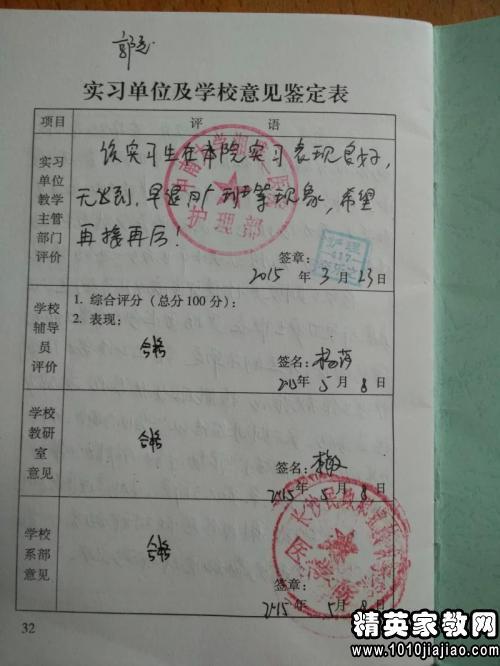 实习单位及学校意见鉴定表
项目 评 语
实习单位教学主管部门评价
该实习生在本院实习表现良好,
无迟到、早退、旷班等现象,希望
再接再厉!
护理部
护理
签章:
2015年3月23日
学校辅导员评价
1. 综合评分(总分100分):
2. 表现:
合格
签名:
2015年5月8日
学校教研室意见
合格
签名:
2015年5月8日
学校系部意见
合格
医学院
签章:
2015年5月8日
32
精英家教网
www.1010jiajiao.com